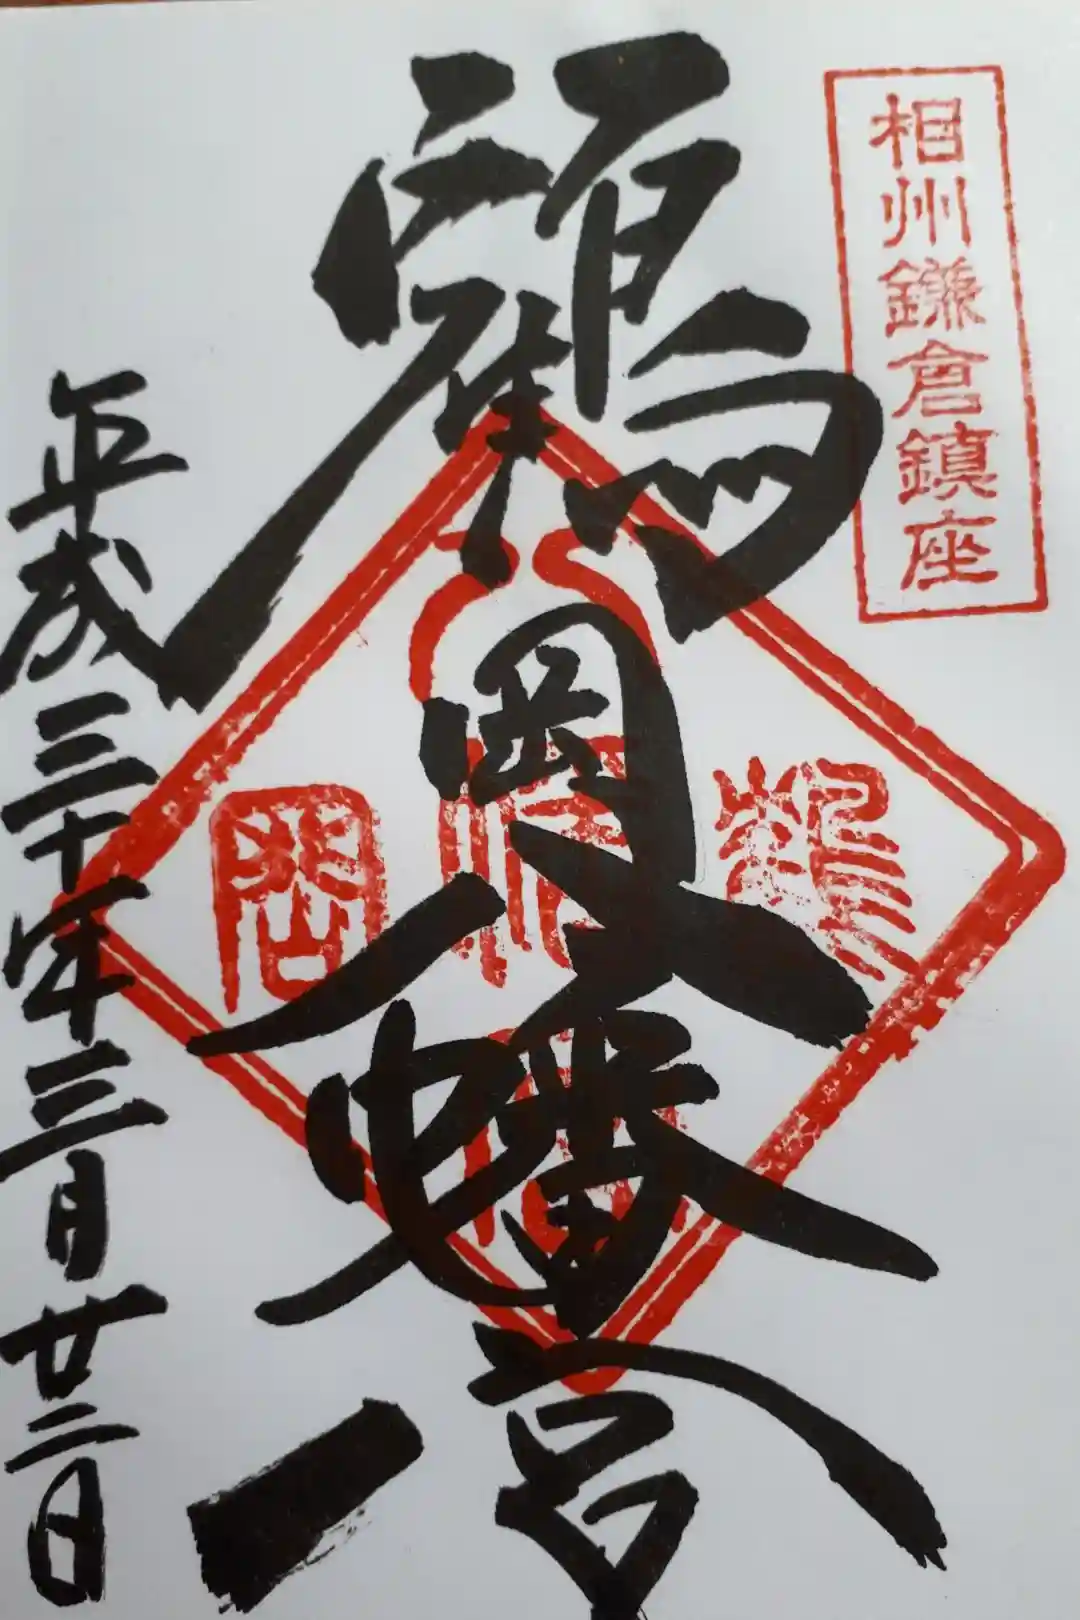 相州鎌倉鎮座
靏岡八幡宮
鶴岡
平成三十年三月廿二日